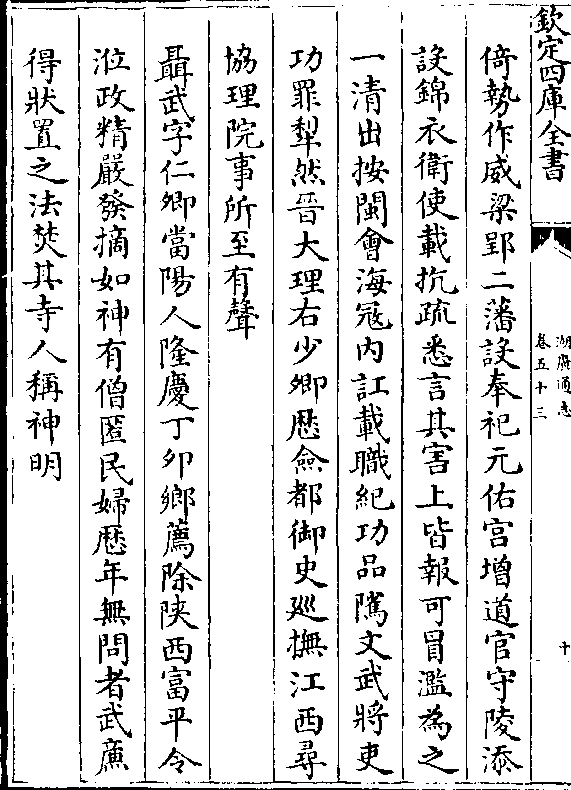 欽定四庫全書
湖廣通志
卷五十三
十
倚勢作威梁郢二藩設奉祀元佑宫增道官守陵添
設錦衣衛使載抗疏悉言其害上皆報可冒濫為之
一清出按閩會海冦内訌載職紀功品隲文武將吏
功罪犁然晉大理右少卿歴僉都御史廵撫江西尋
協理院事所至有聲
聶武字仁卿當陽人隆慶丁夘鄉薦除陜西富平令
涖政精嚴發摘如神有僧匿民婦歴年無問者武亷
得狀置之法焚其寺人稱神明